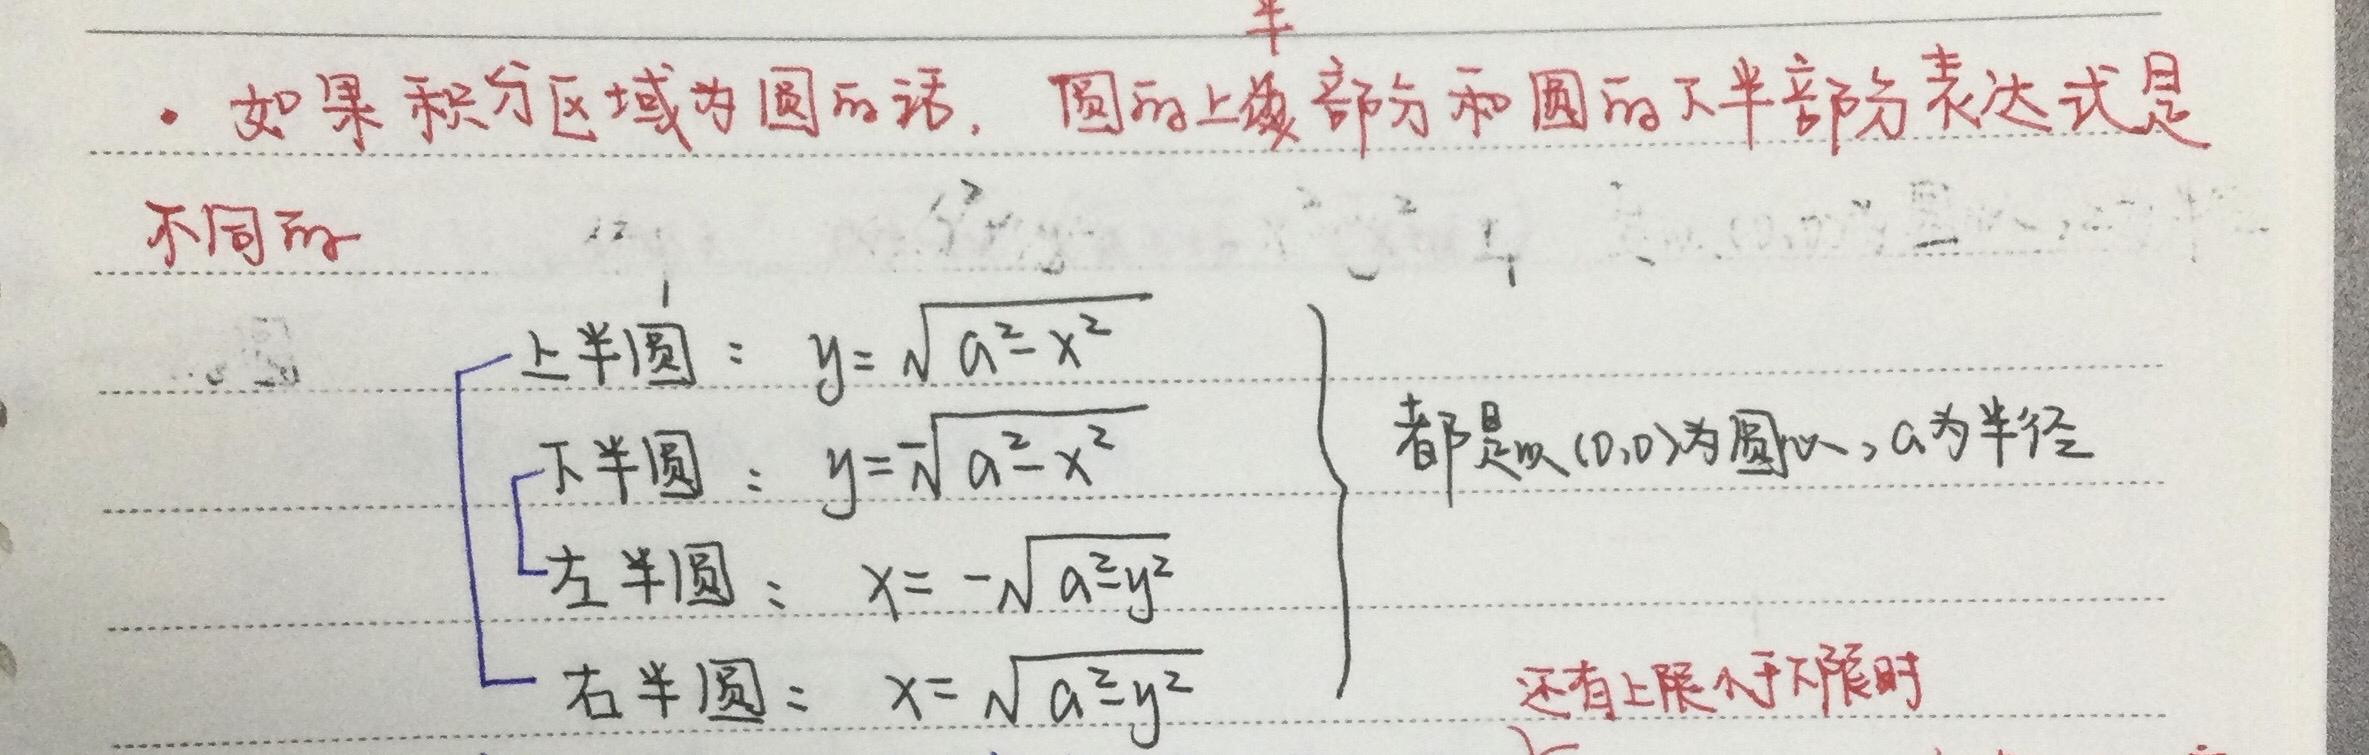 ·如果积分区域为圆的话，圆的上半部分和圆的下半部分表达式是
不同的
上半圆：y=√(a²-x²)
下半圆：y=-√(a²-x²)
都是以(0,0)为圆心,a为半径
左半圆：x=-√(a²-y²)
右半圆：x=√(a²-y²)
还有上限小于下限时